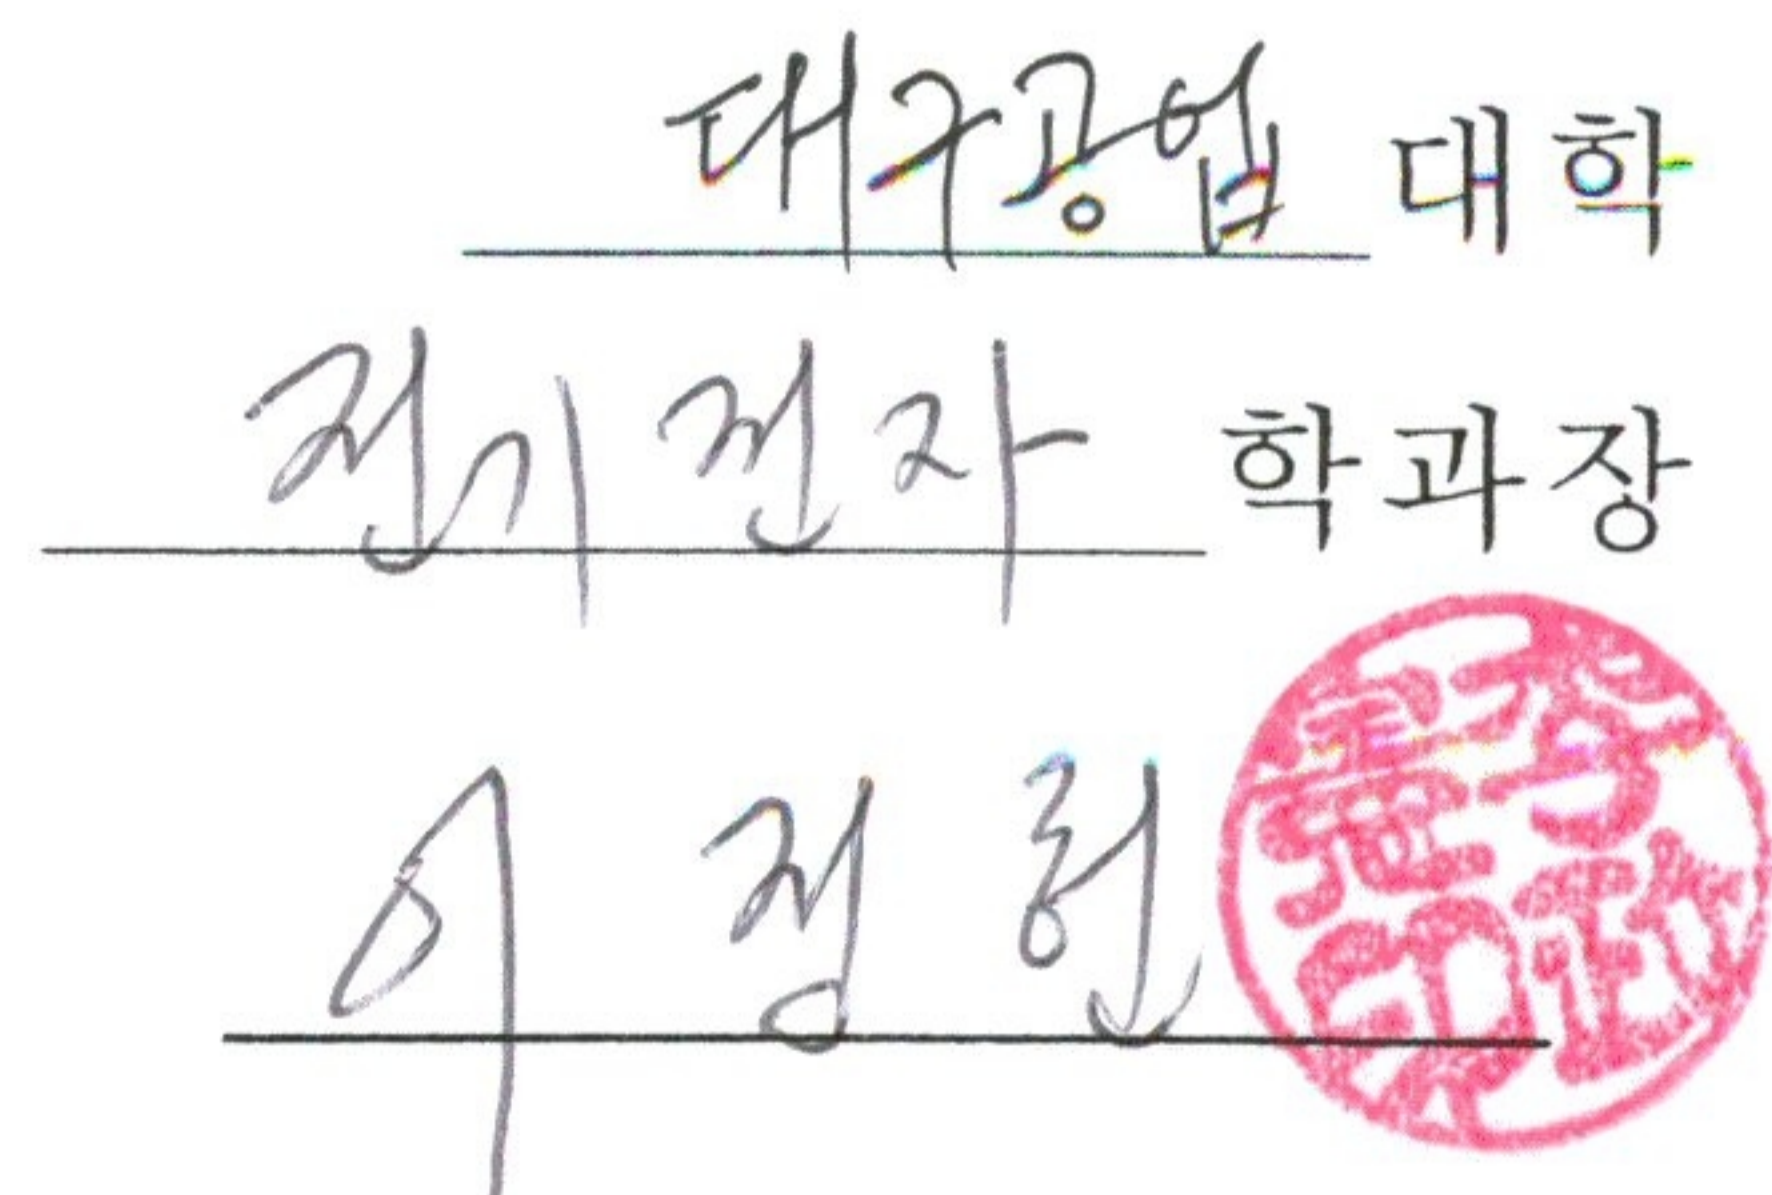 대구공업 대학
전기전자 학과장
이정헌